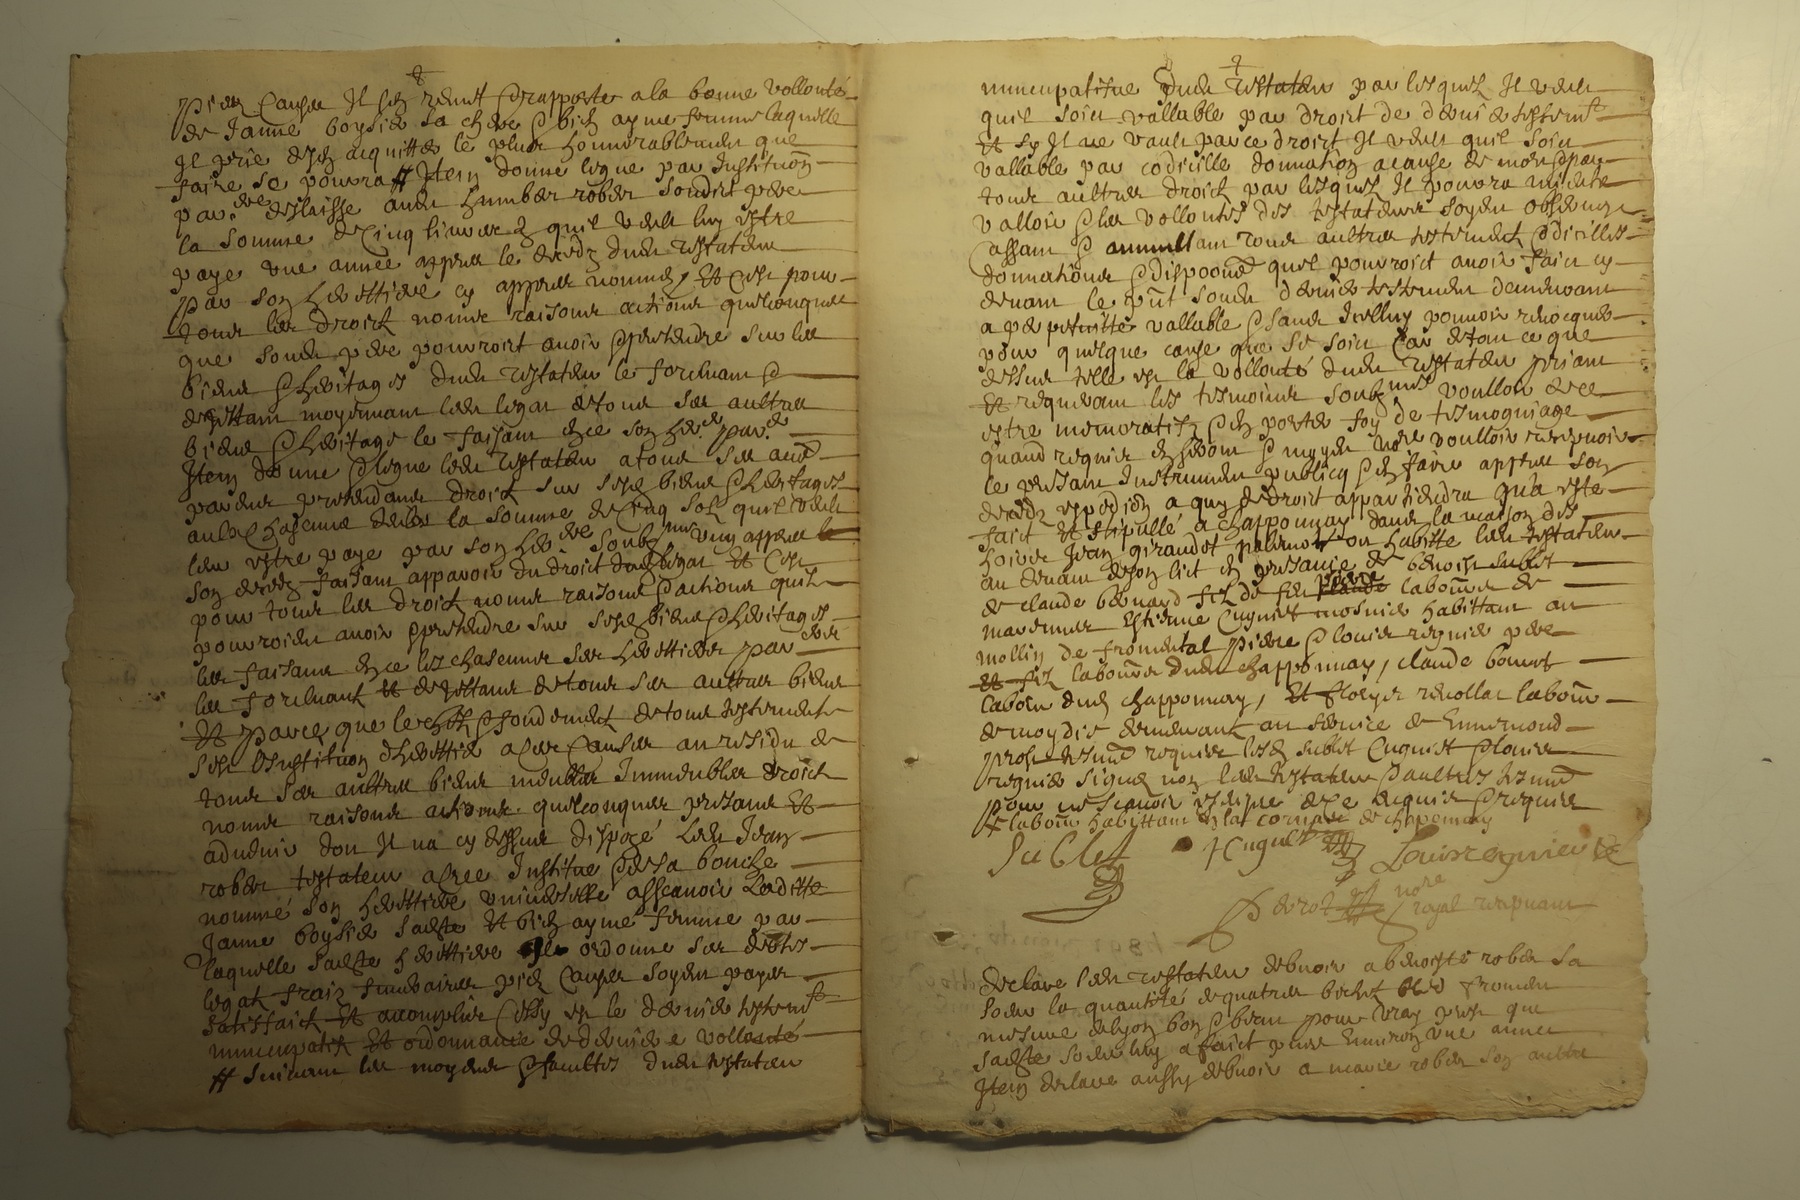 pies causes Il s'en remet et rapporte a la bonne vollonté
de Janne boysie sa chere et bien aymé femme laquelle
Il prie de s'en acquitter le plus honnorablement que
faire se pourra // Item donne legue par Institution
par. dre delaisse audt humber rober sondict pere
la somme de Cinq livres quil veult luy estre
paye une année appres le decedz dudt testateur
par son herettiere cy appres nommée, Et c'est pour
tous les droictz noms raisons actions quelconques
que sondt pere pourroict avoir et prettendre sur les
biens et heritages dudt testateur le forcluant et
dejettant moyennant ledt legat de tous ses aultres
biens et heritage le faisant en ce son her.er par.er
Item donne et legue ledt testateur a tous ses autres
parens prettendans droict sur sesdz biens et heritages
aulx chascuns d'eulx la somme de Cinq solz quil veult
leur estre paye par son her.re soubz nom. ung appres le
son decedz faisant apparoir du droict dudt legat Et C'est
pour tous les droictz noms raisons et actions quilz
pourroient avoir et prettendre sur sesdz biens et heritages
les faisans en ce les chascuns ses herettiers par.ers
les forcluant Et dejettans de tous ses aultres biens
Et parce que le chefz et fondement de tous testements
sest l'Institution d'herettier a ces Causes au residu de
tous ses aultres biens meubles Immeubles droictz
noms raisons actions quelconques presans Et
advenir don Il na cy dessus dispozé Ledt Jean
rober testateur a cree Institue et de sa bouche
nommé son herettiere universelle assçavoir Laditte
Janne boysie sadte Et bien aymé femme par
laquelle sadte herettiere Il ordonne ses debtes
legatz fraiz funeraires pies Causes soyent payer
satisfaictz Et accomplir Cessy est le dernier testemt
nuncupatif Et ordonnance de derniere vollonté
// suivant les moyens et facultés dudt testateur
nuncupatifue dudt testateur par lesquelz Il veult
quil soict vallable par droict de dernier testemt
Et sy Il ne vault par ce droict Il veult quil soict
vallable par codicille donnation a cause de mort et par
tous aultres droictz par lesquelz Il pourra mieulx
valloir et les vollontés des testateurs soyent observez
Cassant et annullant tous aultres testements Codicilles
donnations et dispoons quil pourroict avoir faict cy
devant le pñt soudt dernier testement demeurant
a perpetuitté vallable et sans Icelluy pouvoir revocquer
pour quelque cause que se soict Car de tout ce que
dessus telle est la vollonté dudt testateur priant
Et requerant les tesmoins soubz nmés voulloir de ce
estre memoratifz et en porter foy de tesmoignage
quand requis en seront et moyen nore voulloir recepvoir
le presant Instrument publicq et en faire appres son
decedz expedion a quy de droict appartiendra qu'a este
faict Et stipullé a Chapponnay dans la maison des
hoirs Jean giraudet ou habitte ledt testateur
au devant de son lict en presance de benoist sublet
de claude bernard filz de feu pierre laboureur de
marennes Estienne Cuguet mosnier habittant au
mollin de fromental pierre et louis regnier pere
Et filz laboureur dudt Chapponnay, claude bonet
labour dudt Chapponnay, Et floryer revollat labour
de moydie demeurant au service de Ennemond
prost tesmoins requis lesdz sublet Cuguet et louis
regnier signez non ledt testateur et aultres tesmoins
pour ne sçavoir escripre de ce enquis et requis
labour habittant en la corniere de Chapponnay
Sublet Cuguet Louis regnier
Perrot nore royal recepvant
Declare ledt testateur debvoir a benoiste rober sa
soeur la quantité de quatres bichetz bled froment
mesure de lyon bon et beau pour vray prest que
sadte soeur luy a faict puis Environ une annee
Item declare aussy debvoir a marie rober son aultre